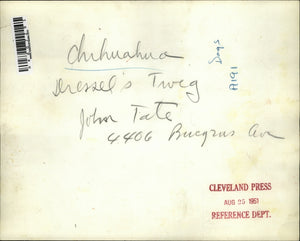 Chihuahua
Dressel's Twig
John Tate
4406 Ave
Dogs
A191
CLEVELAND PRESS
AUG 25 1951
REFERENCE DEPT.